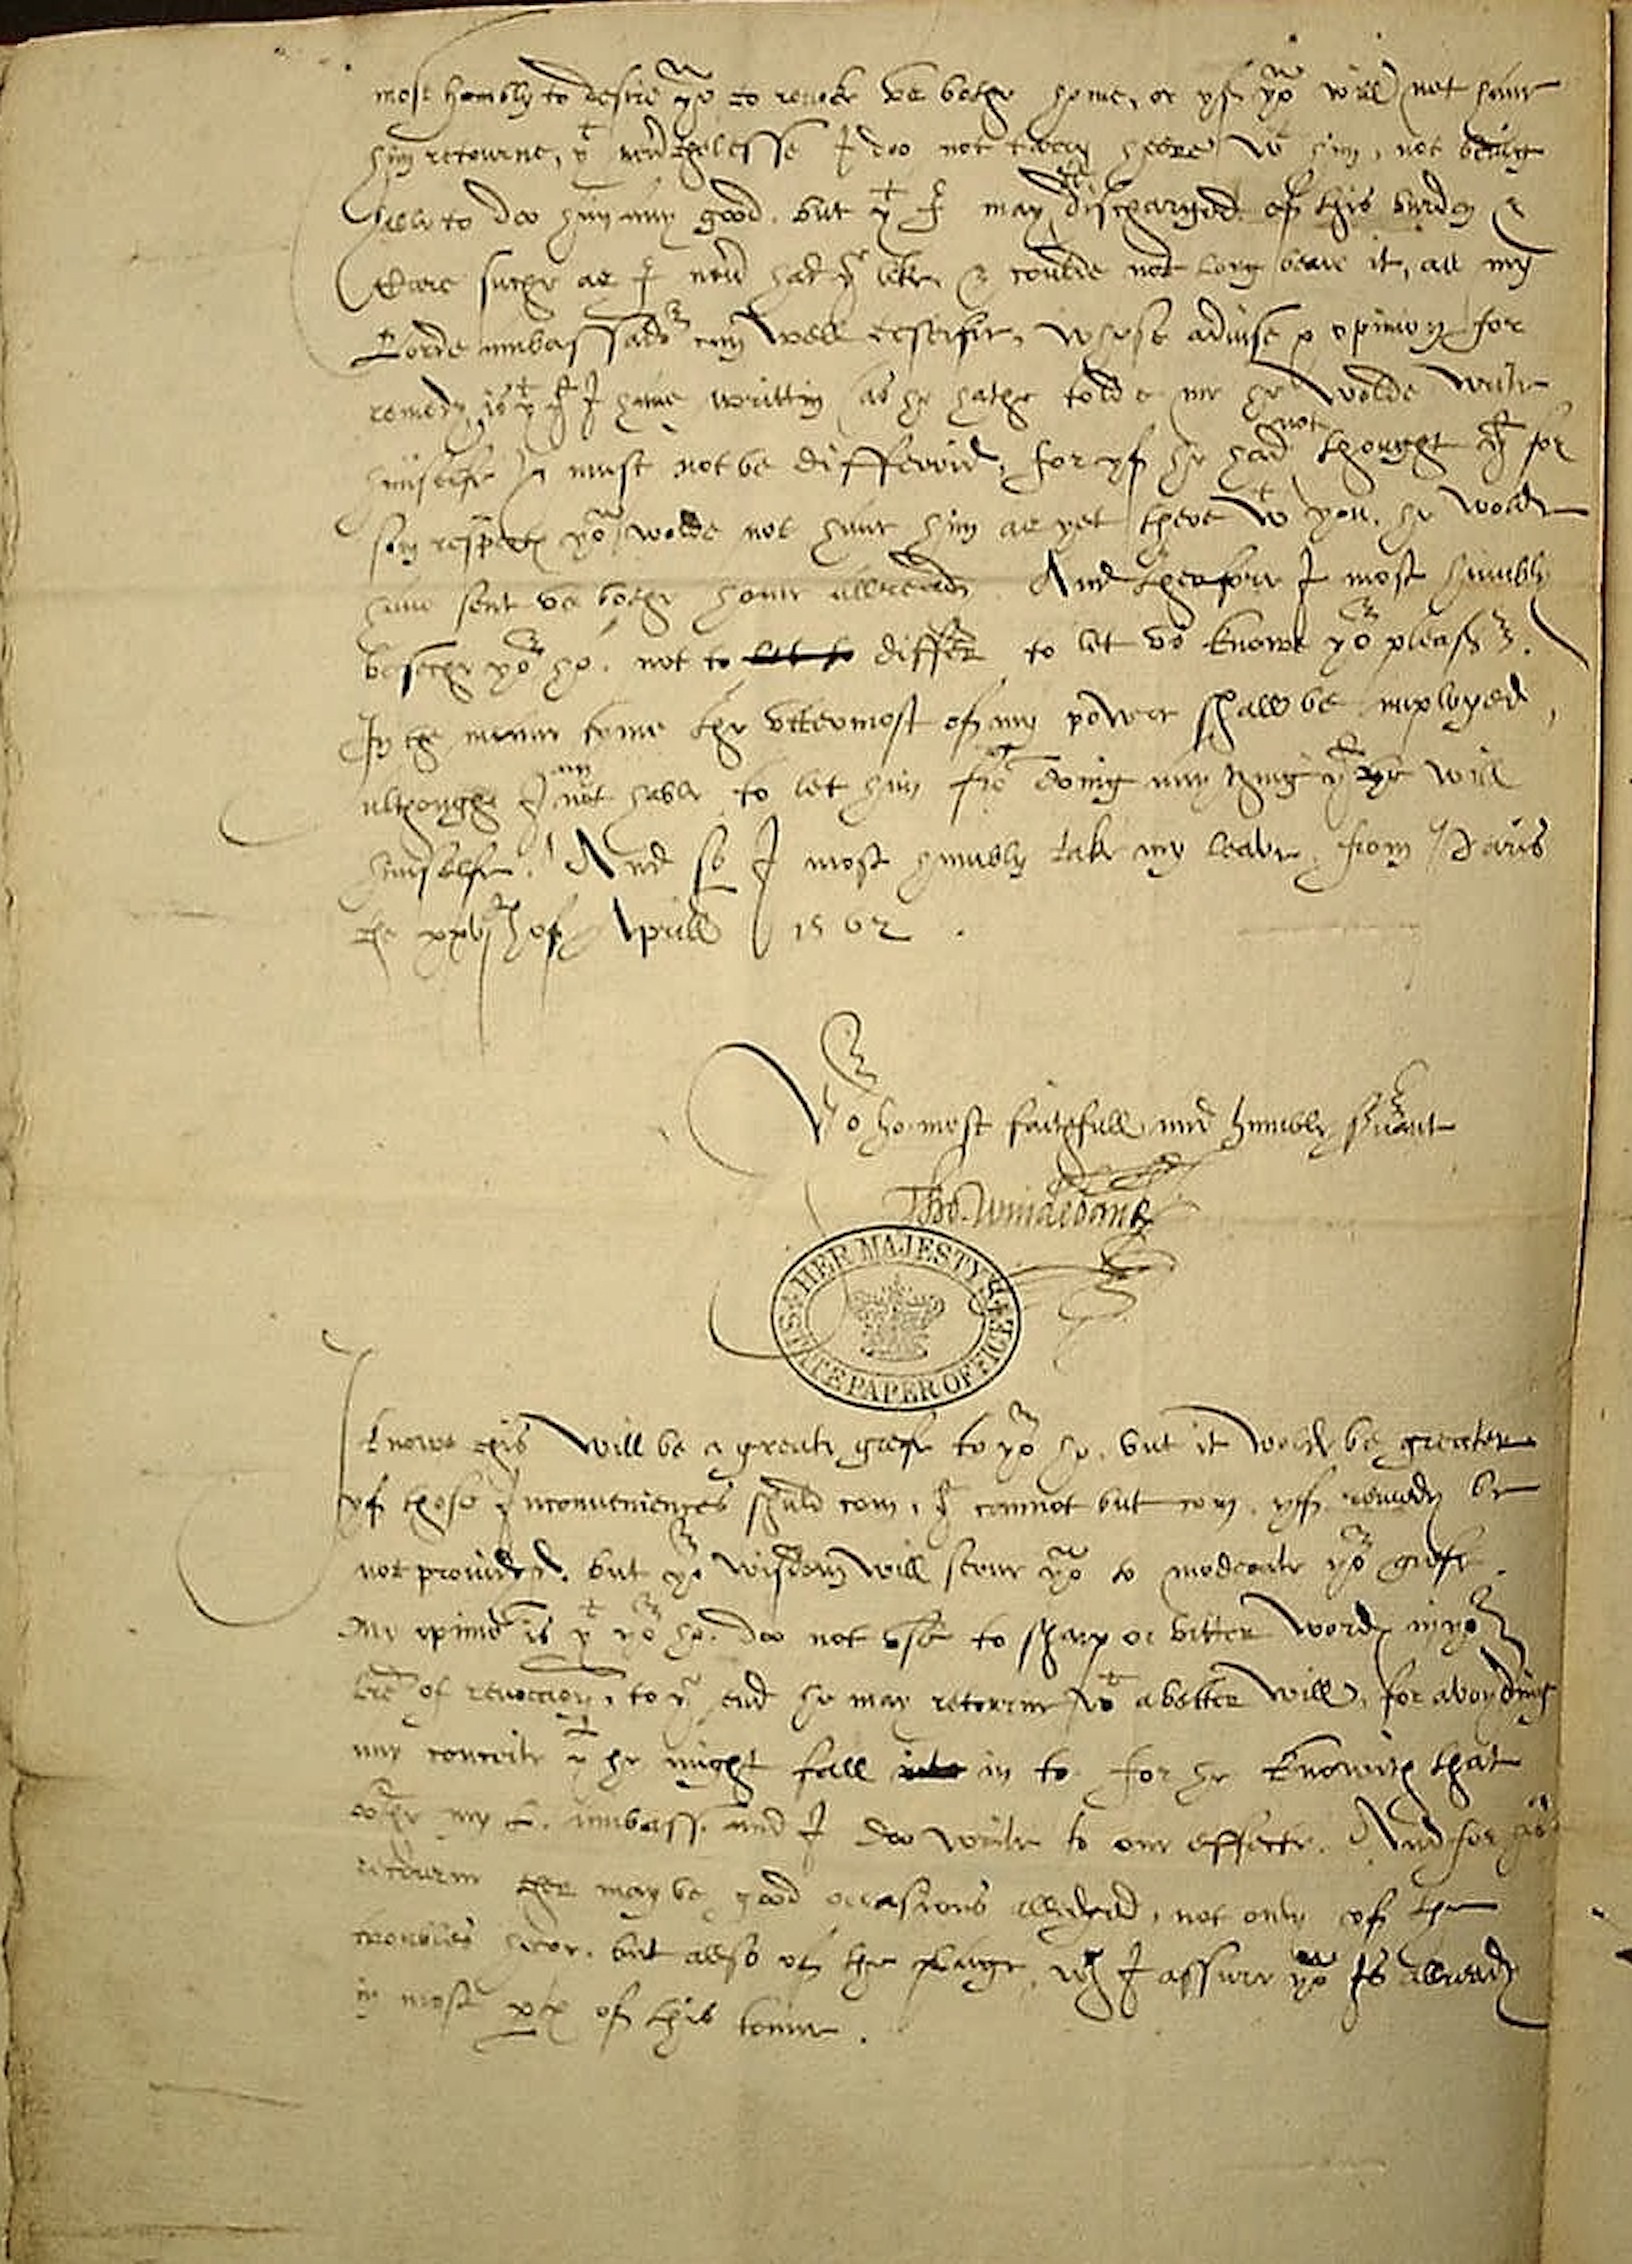 most humbly to desire yor ho to revoke vs bothe home, or yf yow will not have
him retourne, yt neverthelesse I doo not tary heere wt him, not being
able to doo him any good. but yt I may be discharged of this burden &
Care suche as I never had ye like, & coulde not long beare it, as my
Lorde ambassador can well testifie, whose advise & opinion for
remedy is yt I have writtin (as he hathe tolde me he wolde write
himselfe) & must not be differrid, for yf he had not thought yt for
som respectes yow wolde not have him as yet there wt you, he wolde
have sent vs bothe home allready. And therfore I most humbly
beseche yor ho. not to differ to let vs knowe yor pleasr.
In the meane tyme the vttermost of my power shall be imployed,
althoughe I am not hable to let him fro doing any thing yt he will
himselfe. And so I most humbly take my leave, from Paris
the xxvjth of Aprill 1562.
Yor ho. most faithfull and humble servant
Tho. Windebank
HER MAJESTY'S
STATE PAPER OFFICE
I knowe this will be a greate grefe to yor ho. but it wolde be greater
yf those Inconveniences shuld com, yt cannot but com, yf remedy be
not provided. but yor wisdom will serve yow to moderate yor grefe.
My opinion is yt yor ho. doo not vse to sharp or bitter wordes in yor
lre of revocacion, to ye end he may retourne wt a better will, for avoyding
any conceite yt he might fall in to for he knowith that
bothe my L. ambass. and I doo write to one effecte. And for his
retourne ther may be good occasions alledged, not only of the
troubles heer, but allso of the plage, wch I assure yow Is allready
in most ptes of this towne.